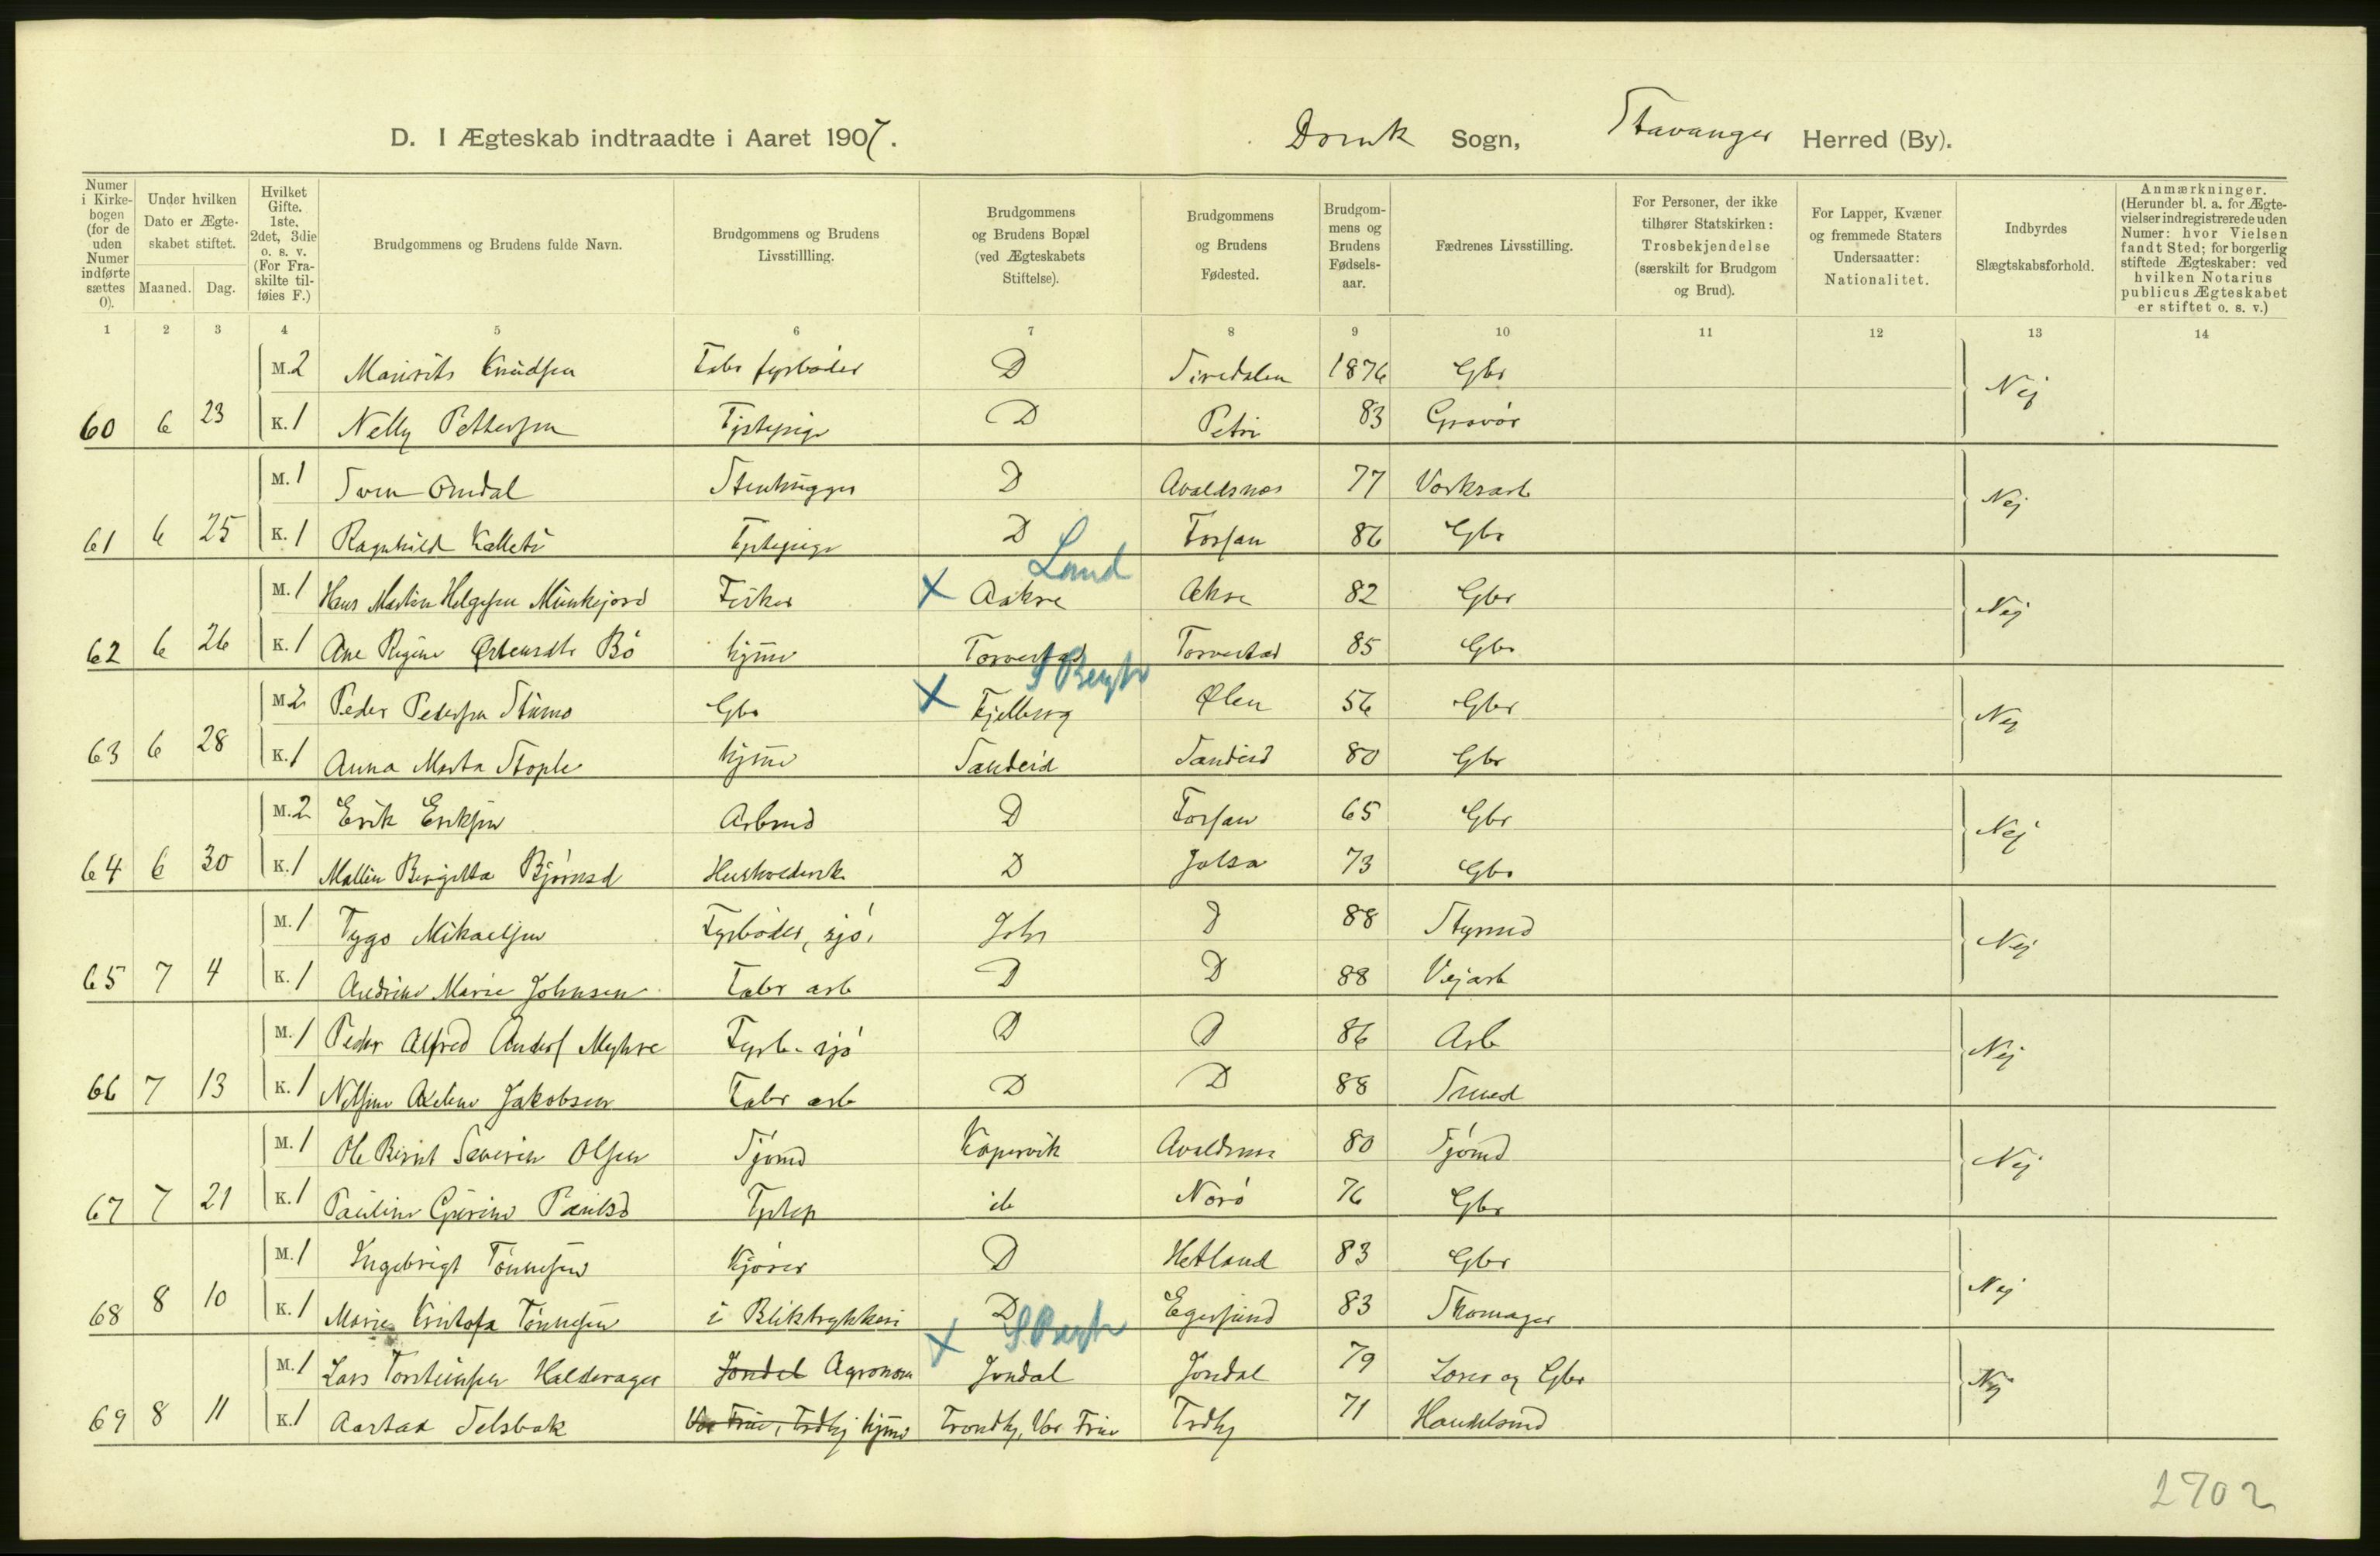 D. I Ægteskab indtraadte i Aaret 1907. Domk Sogn, Stavanger Herred (By).
Numer i Kirkebogen (for de uden Numer indførte sættes 0).
Under hvilken Dato er Ægteskabet stiftet.
Maaned. Dag.
Hvilket Gifte. 1ste, 2det, 3die o. s. v. (For Fraskilte tilføies F.)
Brudgommens og Brudens fulde Navn.
Brudgommens og Brudens Livsstillling.
Brudgommens og Brudens Bopæl (ved Ægteskabets Stiftelse).
Brudgommens og Brudens Fødested.
Brudgommens og Brudens Fødselsaar.
Fædrenes Livsstilling.
For Personer, der ikke tilhører Statskirken: Trosbekjendelse (særskilt for Brudgom og Brud).
For Lapper, Kvæner og fremmede Staters Undersaatter: Nationalitet.
Indbyrdes Slægtskabsforhold.
Anmærkninger. (Herunder bl. a. for Ægtevielser indregistrerede uden Numer: hvor Vielsen fandt Sted; for borgerlig stiftede Ægteskaber: ved hvilken Notarius publicus Ægteskabet er stiftet o. s. v.)
1 2 3 4 5 6 7 8 9 10 11 12 13 14
M. 2 Mauritz Knudsen Fabr fyrbøder D Siredalen 1876 Gbr Nej
60 6 23 K. 1 Nelly Pettersen Tjstepige D Petri 83 Gravør
M. 1 Sven Omdal Stenhugger D Avaldsnes 77 Verksarb Nej
61 6 25 K. 1 Ragnhild D Fossan 86 Gbr
Land
M. 1 Hans Martin Helgesen Munkejord Fisker X Aakre Akre 82 Gbr Nej
62 6 26 K. 1 Ane Regine Bø hjme Torvestad Torvestad 85 Gbr
S Bergh
M. 2 Peder Pedersen Gbr X Fjelberg Ølen 56 Gbr Nej
63 6 28 K. 1 Anna Marta Stople hjme Sandeid Sandeid 80 Gbr
M. 2 Erik Eriksen Arbmd D Fossan 65 Gbr Nej
64 6 30 K. 1 Mallin Bergitta Bjørnsd Husholderske D Jelsa 73 Gbr
M. 1 Tygo Mikaelsen Fyrbøder, sjø. Joh D 88 Styrmd Nej
65 7 4 K. 1 Andrine Marie Johnsen Fabr arb D D 88 Vejarb
M. 1 Peder Alfred Anders Myhre Fyrb. sjø D D 86 Arb Nej
66 7 13 K. 1 Nilsine Jakobsen Fabr arb D D 88 Smed
M. 1 Ole Bernt Severin Olsen Sjømd Kopervik Avaldsnes 80 Sjømd Nej
67 7 21 K. 1 Pauline Gurine Paulsd Tjstep do 76 Gbr
M. 1 Ingebrigt Tønnesen Kjører D Hetland 83 Gbr Nej
68 8 10 K. 1 Marie Kristofa Tønnesen i Bliktrykkeri D Egersund 83 Skomager
S Bergh
M. 1 Lars Torsteinsen Haldorager Jondal Agronom X Jondal Jondal 79 Lærer og Gbr Nej
69 8 11 K. 1 Aastad Selsbak Vor Frue, Trdhj hjme Trondhj, Vor Frue Trdhj 71 Handelsmd
2702